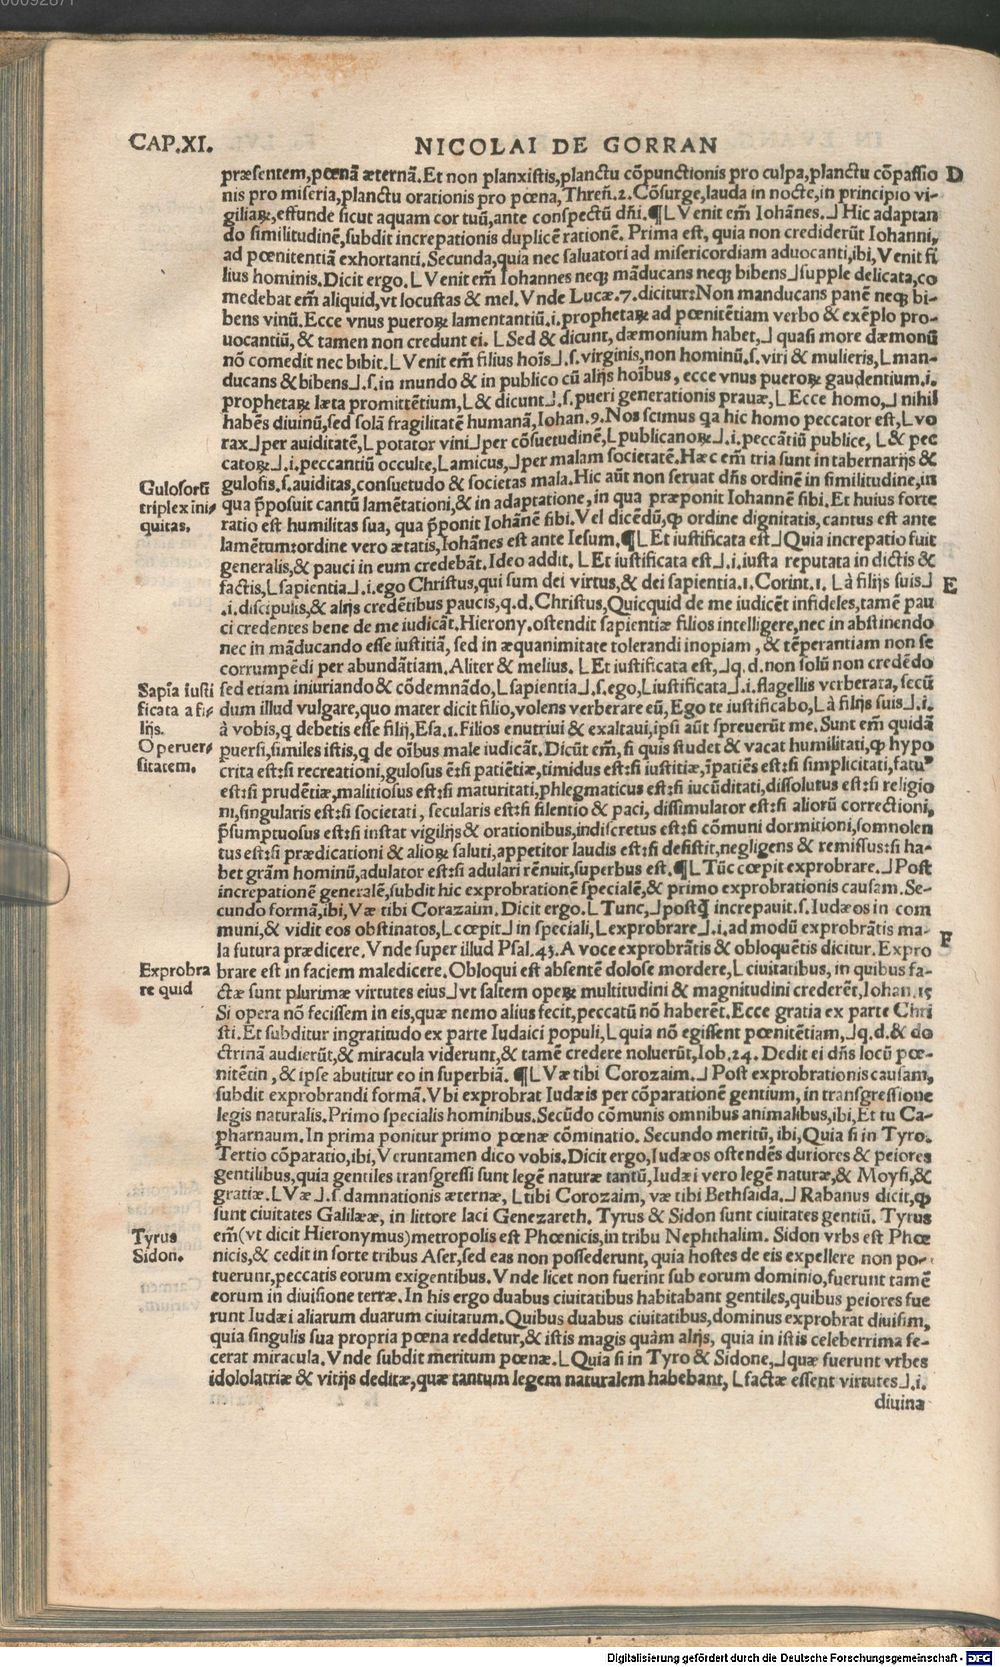 CAP.XI.
NICOLAI DE GORRAN
præsentem,pœnã æternã.Et non planxistis,planctu cõpunctionis pro culpa,planctu cõpassio D
nis pro miseria,planctu orationis pro pœna,Threñ.2.Cõsurge,lauda in nocte,in principio vi-
giliaꝝ,effunde sicut aquam cor tuũ,ante conspectũ dñi.¶⌊Venit em̃ Iohãnes.⌋Hic adaptan
do similitudinẽ,subdit increpationis duplicẽ rationẽ.Prima est, quia non crediderũt Iohanni,
ad pœnitentiã exhortanti.Secunda,quia nec saluatori ad misericordiam aduocanti,ibi,Venit fi
lius hominis.Dicit ergo.⌊Venit em̃ Iohannes neqꝫ mãducans neqꝫ bibens⌋supple delicata,co
medebat em̃ aliquid,vt locustas & mel.Vnde Lucæ.7.dicitur:Non manducans panẽ neqꝫ bi-
bens vinũ.Ecce vnus pueroꝝ lamentantiũ.i.prophetaꝝ ad pœnitẽtiam verbo & exẽplo pro-
uocantiũ, & tamen non credunt ei. ⌊Sed & dicunt, dæmonium habet,⌋ quasi more dæmonũ
nõ comedit nec bibit.⌊Venit em̃ filius hoĩs⌋.s.virginis,non hominũ.s.viri & mulieris,⌊man-
ducans & bibens⌋.s.in mundo & in publico cũ alijs hoĩbus, ecce vnus pueroꝝ gaudentium.i.
prophetaꝝ læta promittẽtium,⌊& dicunt⌋.s.pueri generationis prauæ,⌊Ecce homo,⌋ nihil
habẽs diuinũ,sed solã fragilitatẽ humanã,Iohan.9.Nos scimus qa hic homo peccator est,⌊vo
rax⌋per auiditatẽ,⌊potator vini⌋per cõsuetudinẽ,⌊publicanoꝝ⌋.i.peccãtiũ publice, ⌊& pec
catoꝝ⌋.i.peccantiũ occulte,⌊amicus,⌋per malam societatẽ.Hæc em̃ tria sunt in tabernarijs &
Gulosorũ triplex ini- quitas.
gulosis.s.auiditas,consuetudo & societas mala.Hic aũt non seruat dñs ordinẽ in similitudine,in
qua p̃posuit cantũ lamẽtationi,& in adaptatione,in qua præponit Iohannẽ sibi.Et huius forte
ratio est humilitas sua, qua p̃ponit Iohãnẽ sibi.Vel dicẽdũ,ꝙ ordine dignitatis,cantus est ante
lamẽtum:ordine vero ætatis,Iohãnes est ante Iesum.¶⌊Et iustificata est⌋Quia increpatio fuit
generalis,& pauci in eum credebãt.Ideo addit. ⌊Et iustificata est⌋.i.iusta reputata in dictis &
factis,⌊sapientia⌋.i.ego Christus,qui sum dei virtus,& dei sapientia.1.Corint.1. ⌊à filijs suis⌋ E
.i.discipulis,& alijs credẽtibus paucis,q.d.Christus,Quicquid de me iudicẽt infideles,tamẽ pau
ci credentes bene de me iudicãt.Hierony.ostendit sapientiæ filios intelligere,nec in abstinendo
nec in mãducando esse iustitiã, sed in æquanimitate tolerandi inopiam , & tẽperantiam non se
corrumpẽdi per abundãtiam.Aliter & melius. ⌊Et iustificata est,⌋q.d.non solũ non credẽdo
Sapĩa iusti ficata a fi- lijs.
sed etiam iniuriando & cõdemnãdo,⌊sapientia⌋.s.ego,⌊iustificata⌋.i.flagellis verberata, secũ
dum illud vulgare,quo mater dicit filio,volens verberare eũ,Ego te iustificabo,⌊à filijs suis⌋.i.
à vobis,q debetis esse filij,Esa.1.Filios enutriui & exaltaui,ipsi aũt spreuerũt me.Sunt em̃ quidã
O peruer- sitatem.
puersi,similes istis,q de oĩbus male iudicãt.Dicũt em̃, si quis studet & vacat humilitati,ꝙ hypo
crita est:si recreationi,gulosus ẽ:si patiẽtiæ,timidus est:si iustitiæ,ĩpatiẽs est:si simplicitati,fatuꝰ
est:si prudẽtiæ,malitiosus est:si maturitati,phlegmaticus est:si iucũditati,dissolutus est:si religio
ni,singularis est:si societati, secularis est:si silentio & paci, dissimulator est:si aliorũ correctioni,
p̃sumptuosus est:si instat vigilijs & orationibus,indiscretus est:si cõmuni dormitioni,somnolen
tus est:si prædicationi & alioꝝ saluti,appetitor laudis est:si desistit,negligens & remissus:si ha-
bet grãm hominũ,adulator est:si adulari rẽnuit,superbus est.¶⌊Tũc cœpit exprobrare.⌋Post
increpationẽ generalẽ,subdit hic exprobrationẽ specialẽ,& primo exprobrationis causam.Se-
cundo formã,ibi,Væ tibi Corazaim.Dicit ergo.⌊Tunc,⌋postꝗ̃ increpauit.s.Iudæos in com
muni,& vidit eos obstinatos,⌊cœpit⌋in speciali,⌊exprobrare⌋.i.ad modũ exprobrãtis ma- F
la futura prædicere.Vnde super illud Psal.43.A voce exprobrãtis & obloquẽtis dicitur.Expro
Exprobra re quid
brare est in faciem maledicere.Obloqui est absentẽ dolose mordere,⌊ciuitatibus, in quibus fa-
ctæ sunt plurimæ virtutes eius⌋vt saltem opeꝝ multitudini & magnitudini crederẽt,Iohan.15
Si opera nõ fecissem in eis,quæ nemo alius fecit,peccatũ nõ haberẽt.Ecce gratia ex parte Chri
sti.Et subditur ingratitudo ex parte Iudaici populi,⌊quia nõ egissent pœnitẽtiam,⌋q.d.& do
ctrinã audierũt,& miracula viderunt,& tamẽ credere noluerũt,Iob.24.Dedit ei dñs locũ pœ-
nitẽtiæ,& ipse abutitur eo in superbiã.¶⌊Væ tibi Corozaim.⌋Post exprobrationis causam,
subdit exprobrandi formã.Vbi exprobrat Iudæis per cõparationẽ gentium, in transgressione
legis naturalis.Primo specialis hominibus.Secũdo cõmunis omnibus animalibus,ibi,Et tu Ca-
pharnaum.In prima ponitur primo pœnæ cõminatio. Secundo meritũ,ibi,Quia si in Tyro.
Tertio cõparatio,ibi,Veruntamen dico vobis.Dicit ergo,Iudæos ostendẽs duriores & peiores
gentilibus,quia gentiles transgressi sunt legẽ naturæ tantũ,Iudæi vero legẽ naturæ,& Moysi,&
gratiæ.⌊Væ⌋.s.damnationis æternæ, ⌊tibi Corozaim, væ tibi Bethsaida.⌋Rabanus dicit,ꝙ
sunt ciuitates Galilææ, in littore laci Genezareth. Tyrus & Sidon sunt ciuitates gentiũ. Tyrus
Tyrus Sidon.
em̃(vt dicit Hieronymus)metropolis est Phœnicis,in tribu Nephthalim. Sidon vrbs est Phœ
nicis,& cedit in sorte tribus Aser,sed eas non possederunt, quia hostes de eis expellere non po-
tuerunt,peccatis eorum exigentibus.Vnde licet non fuerint sub eorum dominio,fuerunt tamẽ
eorum in diuisione terræ.In his ergo duabus ciuitatibus habitabant gentiles,quibus peiores fue
runt Iudæi aliarum duarum ciuitatum.Quibus duabus ciuitatibus,dominus exprobrat diuisim,
quia singulis sua propria pœna reddetur,& istis magis quàm alijs, quia in istis celeberrima fe-
cerat miracula.Vnde subdit meritum pœnæ.⌊Quia si in Tyro & Sidone,⌋quæ fuerunt vrbes
idololatriæ & vitijs deditæ,quæ tantum legem naturalem habebant, ⌊factæ essent virtutes⌋.i.
diuina
Digitalisierung gefördert durch die Deutsche Forschungsgemeinschaft - DFG